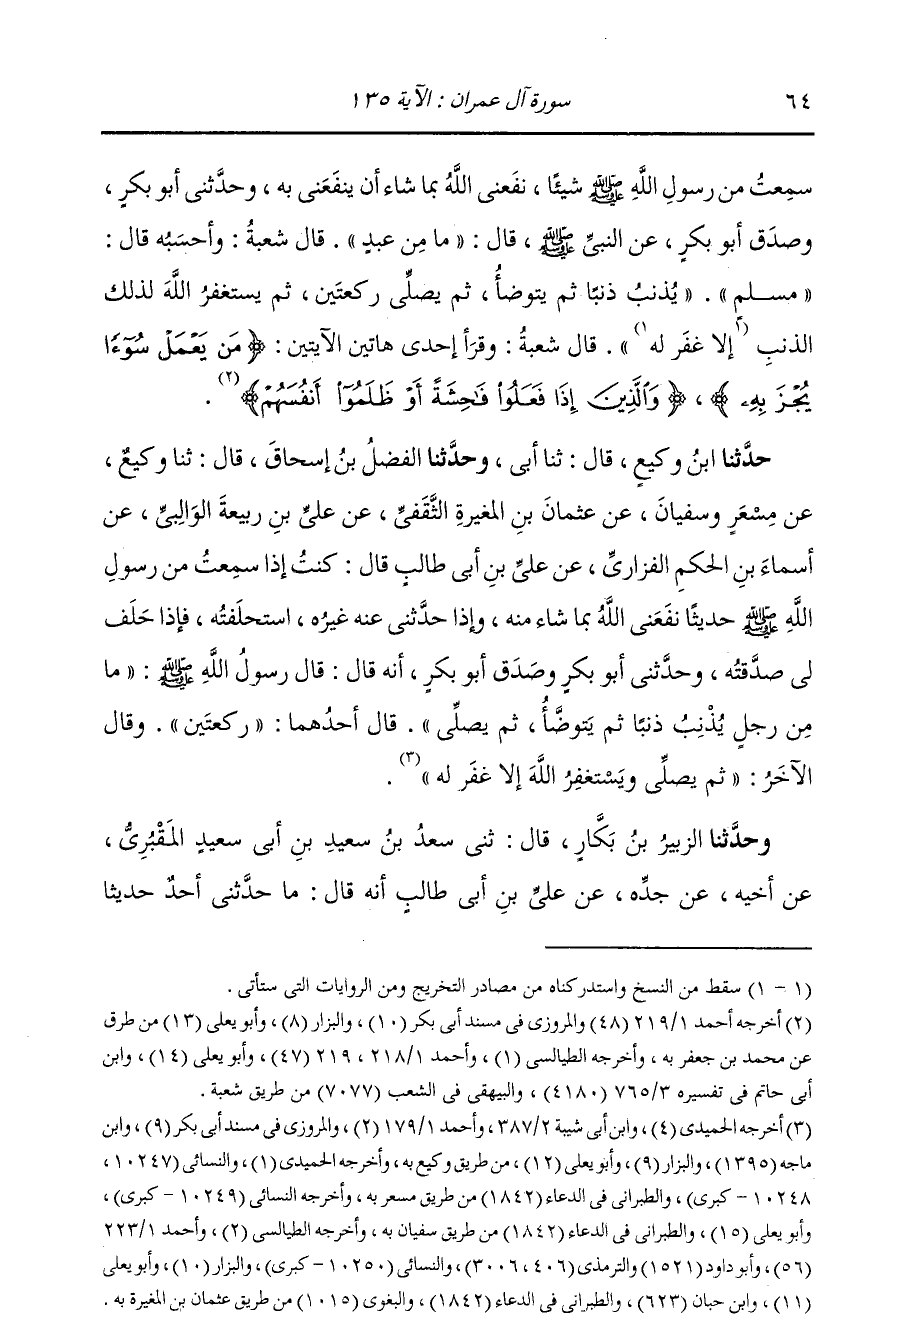 ٦٤ سورة آل عمران : الآية ١٣٥
سمِعتُ من رسولِ اللَّهِ ﷺ شيئًا ، نفَعنى اللَّهُ بما شاء أن ينفَعَنى به ، وحدَّثنى أبو بكرٍ ،
وصدَق أبو بكرٍ ، عن النبىِّ ﷺ ، قال : « ما مِن عبدٍ » . قال شعبةُ : وأحسَبُه قال :
« مسلمٍ » . « يُذنبُ ذنبًا ثم يتوضأُ ، ثم يصلِّى ركعتَين ، ثم يستغفرُ اللَّهَ لذلك
الذنبِ (١ إلا غفَر له ١) » . قال شعبةُ : وقرَأ إحدى هاتين الآيتين : ﴿ مَن يَعْمَلْ سُوٓءًا
يُجْزَ بِهِۦ ﴾ ، ﴿ وَٱلَّذِينَ إِذَا فَعَلُوا۟ فَٰحِشَةً أَوْ ظَلَمُوٓا۟ أَنفُسَهُمْ ﴾(٢) .
حدَّثنا ابنُ وكيعٍ ، قال : ثنا أبى ، وحدَّثنا الفضلُ بنُ إسحاقَ ، قال : ثنا وكيعٌ ،
عن مِسْعَرٍ وسفيانَ ، عن عثمانَ بنِ المغيرةِ الثَّقَفىِّ ، عن علىِّ بنِ ربيعةَ الوَالِبىِّ ، عن
أسماءَ بنِ الحكمِ الفزارىِّ ، عن علىِّ بنِ أبى طالبٍ قال : كنتُ إذا سمِعتُ من رسولِ
اللَّهِ ﷺ حديثًا نفَعَنى اللَّهُ بما شاء منه ، وإذا حدَّثنى عنه غيرُه ، استحلَفتُه ، فإذا حَلَف
لى صدَّقتُه ، وحدَّثنى أبو بكرٍ وصَدَق أبو بكرٍ ، أنه قال : قال رسولُ اللَّهِ ﷺ : « ما
مِن رجلٍ يُذْنِبُ ذنبًا ثم يَتوضَّأُ ، ثم يصلِّى » . قال أحدُهما : « ركعتَين » . وقال
الآخَرُ : « ثم يصلِّى ويَسْتغفِرُ اللَّهَ إلا غفَر له »(٣) .
وحدَّثنا الزبيرُ بنُ بَكَّارٍ ، قال : ثنى سعدُ بنُ سعيدِ بنِ أبى سعيدٍ المَقْبُرىُّ ،
عن أخيه ، عن جدِّه ، عن علىِّ بنِ أبى طالبٍ أنه قال : ما حدَّثنى أحدٌ حديثا
(١ - ١) سقط من النسخ واستدركناه من مصادر التخريج ومن الروايات التى ستأتى .
(٢) أخرجه أحمد ٢١٩/١ (٤٨) والمروزى فى مسند أبى بكر (١٠) ، والبزار (٨) ، وأبو يعلى (١٣) من طرق
عن محمد بن جعفر به ، وأخرجه الطيالسى (١) ، وأحمد ٢١٨/١ ، ٢١٩ (٤٧) ، وأبو يعلى (١٤) ، وابن
أبى حاتم فى تفسيره ٧٦٥/٣ (٤١٨٠) ، والبيهقى فى الشعب (٧٠٧٧) من طريق شعبة .
(٣) أخرجه الحميدى (٤) ، وابن أبى شيبة ٣٨٧/٢ ، وأحمد ١٧٩/١ (٢) ، والمروزى فى مسند أبى بكر (٩) ، وابن
ماجه (١٣٩٥) ، والبزار (٩) ، وأبو يعلى (١٢) ، من طريق وكيع به ، وأخرجه الحميدى (١) ، والنسائى (١٠٢٤٧ ،
١٠٢٤٨ - كبرى) ، والطبرانى فى الدعاء (١٨٤٢) من طريق مسعر به ، وأخرجه النسائى (١٠٢٤٩ - كبرى) ،
وأبو يعلى (١٥) ، والطبرانى فى الدعاء (١٨٤٢) من طريق سفيان به ، وأخرجه الطيالسى (٢) ، وأحمد ٢٢٣/١
(٥٦) ، وأبو داود (١٥٢١) والترمذى (٤٠٦ ، ٣٠٠٦) ، والنسائى (١٠٢٥٠ - كبرى) ، والبزار (١٠) ، وأبو يعلى
(١١) ، وابن حبان (٦٢٣) ، والطبرانى فى الدعاء (١٨٤٢) ، والبغوى (١٠١٥) من طريق عثمان بن المغيرة به .